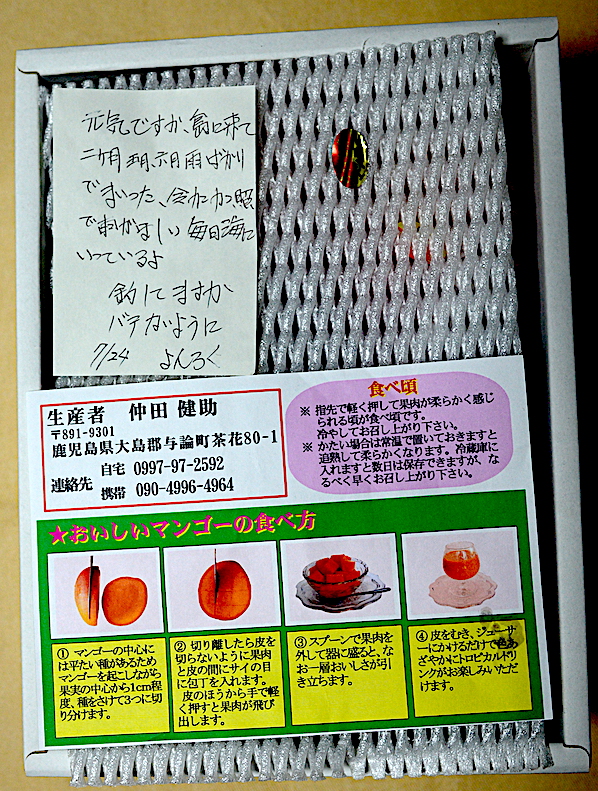 元気ですか、島に来て
二ヶ月 五月六月雨ばかり
でまいった、今カンカン照
で車がほしい 毎日海に
いっているよ
釣してますか
バテないように
7/24 よんろく
生産者 仲田 健助
〒891-9301
鹿児島県大島郡与論町茶花80-1
連絡先 自宅 0997-97-2592
携帯 090-4996-4964
食べ頃
※ 指先で軽く押して果肉が柔らかく感じ
られる頃が食べ頃です。
冷やしてお召し上がり下さい。
※ かたい場合は常温で置いておきますと
追熟して柔らかくなります。冷蔵庫に
入れますと数日は保存できますが、な
るべく早くお召し上がり下さい。
★おいしいマンゴーの食べ方
① マンゴーの中心に
は平たい種があるため
マンゴーを起こしながら
果実の中心から1cm程
度、種をさけて3つに切
り分けます。
② 切り離したら皮を
切らないように果肉
と皮の間にサイの目
に包丁を入れます。
皮のほうから手で軽
く押すと果肉が飛び
出します。
③ スプーンで果肉を
外して器に盛ると、な
お一層おいしさが引
き立ちます。
④ 皮をむき、ジューサ
ーにかけるだけで色あ
ざやかにトロピカルドリ
ンクがお楽しみいただ
けます。